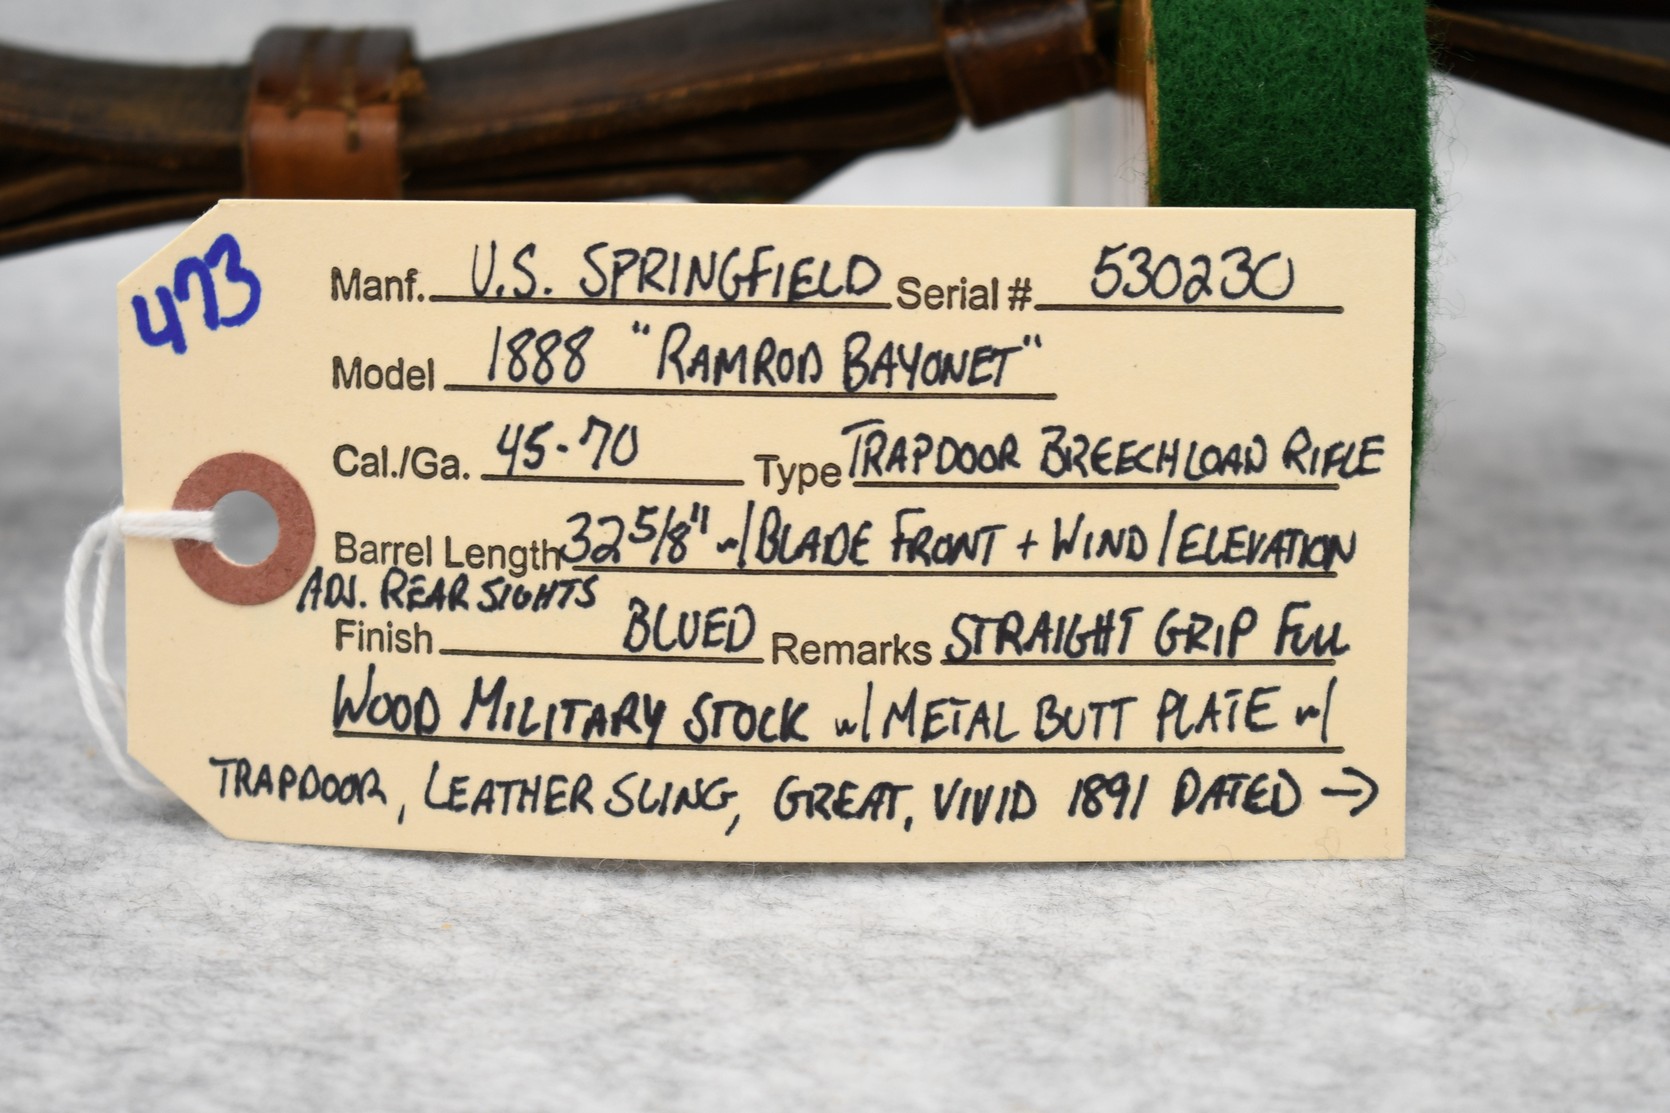 473
Manf. U.S. SPRINGFIELD Serial # 530230
Model 1888 "RAMROD BAYONET"
Cal./Ga. 45-70 Type TRAPDOOR BREECHLOAD RIFLE
Barrel Length 32 5/8" w/ BLADE FRONT + WIND / ELEVATION
ADJ. REAR SIGHTS
Finish BLUED Remarks STRAIGHT GRIP FULL
WOOD MILITARY STOCK w/ METAL BUTT PLATE w/
TRAPDOOR, LEATHER SLING, GREAT, VIVID 1891 DATED →